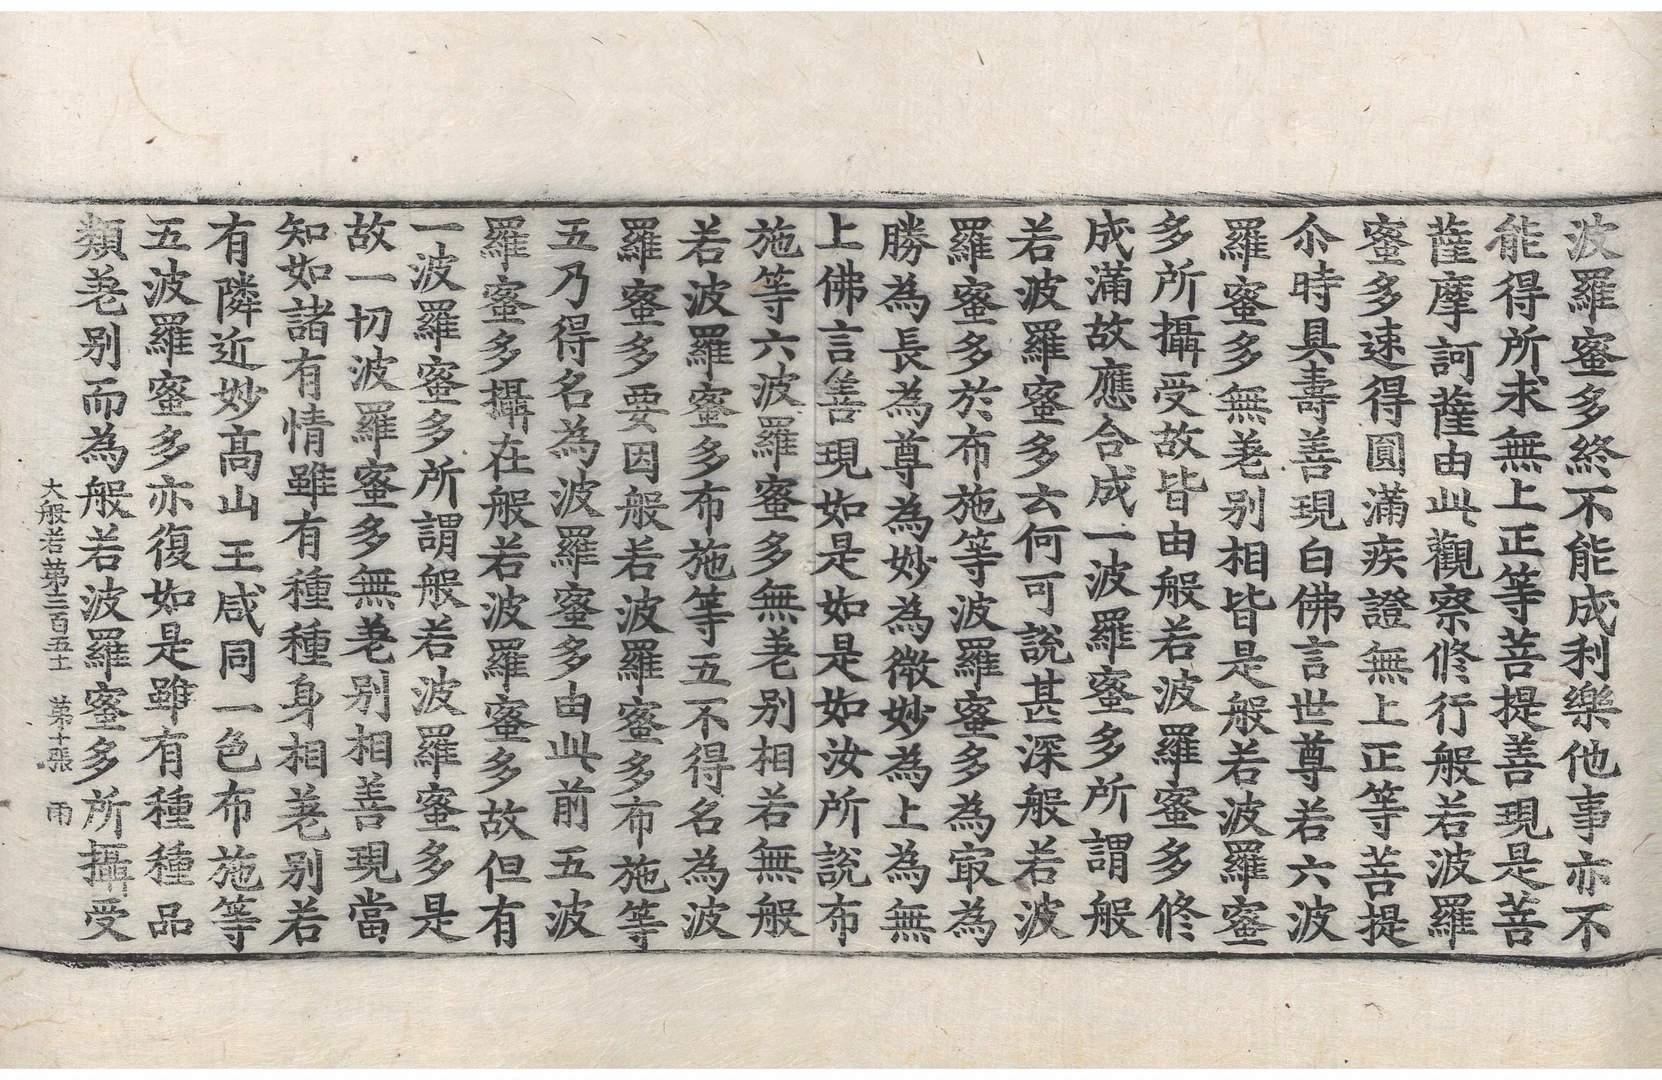 波羅蜜多終不能成利樂他事亦不
能得所求無上正等菩提善現是菩
薩摩訶薩由此觀察修行般若波羅
蜜多速得圓滿疾證無上正等菩提
尒時具壽善現白佛言世尊若六波
羅蜜多無差別相皆是般若波羅蜜
多所攝受故皆由般若波羅蜜多修
成滿故應合成一波羅蜜多所謂般
若波羅蜜多云何可說甚深般若波
羅蜜多於布施等波羅蜜多為㝡為
勝為長為尊為妙為微妙為上為無
上佛言善現如是如是如汝所說布
施等六波羅蜜多無差別相若無般
若波羅蜜多布施等五不得名為波
羅蜜多要因般若波羅蜜多布施等
五乃得名為波羅蜜多由此前五波
羅蜜多攝在般若波羅蜜多故但有
一波羅蜜多所謂般若波羅蜜多是
故一切波羅蜜多無差別相善現當
知如諸有情雖有種種身相差別若
有隣近妙高山王咸同一色布施等
五波羅蜜多亦復如是雖有種種品
類差別而為般若波羅蜜多所攝受
大般若第三百五十 第十張 雨